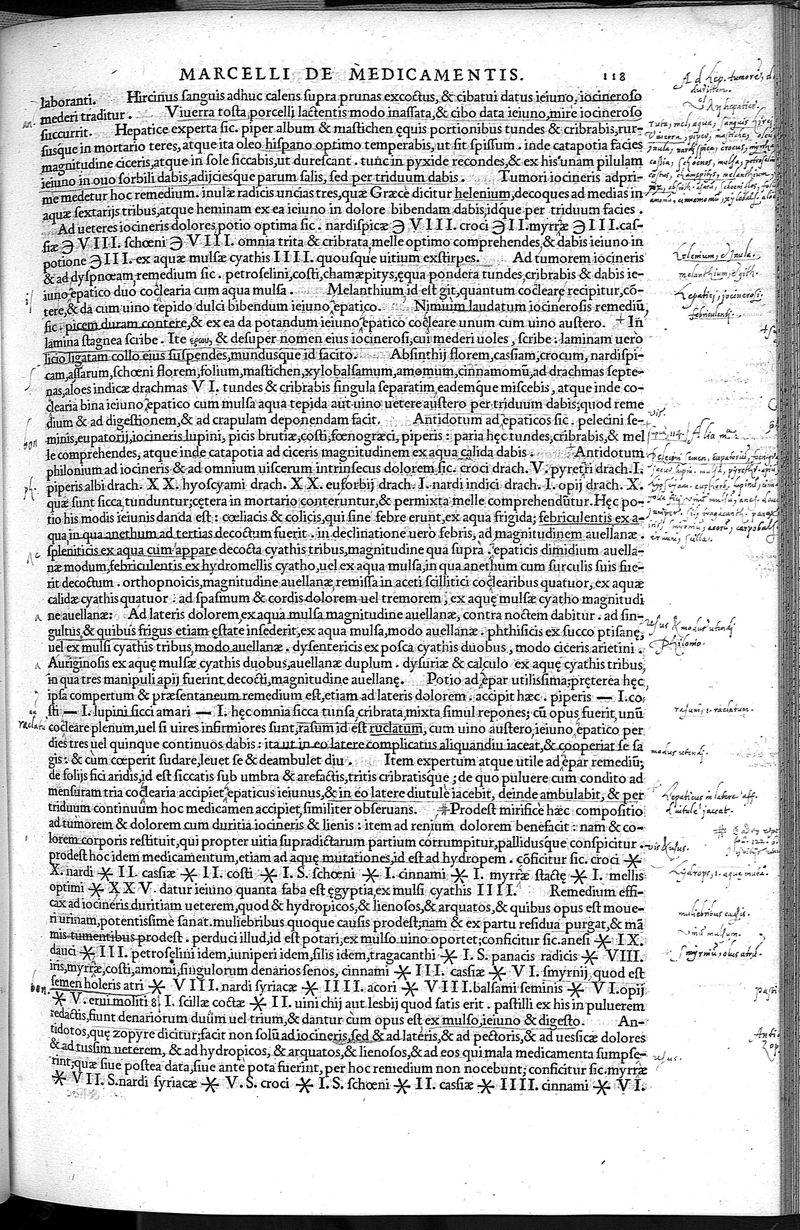 MARCELLI DE MEDICAMENTIS. 118
laboranti. Hircinus sanguis adhuc calens supra prunas excoctus, & cibatui datus ieiuno, iocineroso
mederi traditur. Viuerra tosta, porcelli lactentis modo inassata, & cibo data ieiuno, mire iocineroso
succurrit. Hepatice experta sic. piper album & mastichen ęquis portionibus tundes & cribrabis, rur-
susque in mortario teres, atque ita oleo hispano optimo temperabis, ut sit spissum. inde catapotia facies
magnitudine ciceris, atque in sole siccabis, ut durescant. tunc in pyxide recondes, & ex his unam pilulam
ieiuno in ouo sorbili dabis, adijciesque parum salis, sed per triduum dabis. Tumori iocineris adpri-
me medetur hoc remedium. inulæ radicis uncias tres, quæ Græce dicitur helenium, decoques ad medias in
aquæ sextarijs tribus, atque heminam ex ea ieiuno in dolore bibendam dabis, idque per triduum facies.
Ad ueteres iocineris dolores, potio optima sic. nardispicæ Ə VIII. croci Ə II. myrræ Ə III. cas-
siæ Ə VIII. schœni Ə VIII. omnia trita & cribrata, melle optimo comprehendes, & dabis ieiuno in
potione Ə III. ex aquæ mulsæ cyathis IIII. quousque uitium exstirpes. Ad tumorem iocineris
& ad dyspnœam, remedium sic. petroselini, costi, chamæpitys, ęqua pondera tundes, cribrabis & dabis ie-
iuno epatico duo coclearia cum aqua mulsa. Melanthium, id est git, quantum cocleare recipitur, cō-
tere, & da cum uino tepido dulci bibendum ieiuno epatico. Nimium laudatum iocinerosis remediū,
sic. picem duram contere, & ex ea da potandum ieiuno epatico cocleare unum cum uino austero. + In
lamina stagnea scribe. Ite & desuper nomen eius iocinerosi, cui mederi uoles, scribe: laminam uero
licio ligatam collo eius suspendes, mundusque id facito. Absinthij florem, cassiam, crocum, nardispi-
cam, assarum, schœni florem, folium, mastichen, xylobalsamum, amomum, cinnamomū, ad drachmas septe-
nas, aloes indicæ drachmas VI. tundes & cribrabis singula separatim, eademque miscebis, atque inde co-
clearia bina ieiuno epatico cum mulsa aqua tepida aut uino uetere austero per triduum dabis; quod reme
dium & ad digestionem, & ad crapulam deponendam facit. Antidotum ad epaticos sic. pelecini se-
minis, eupatorij, iocineris lupini, picis brutiæ, costi, fœnogræci, piperis: paria hęc tundes, cribrabis, & mel
le comprehendes, atque inde catapotia ad ciceris magnitudinem ex aqua calida dabis. Antidotum
philonium ad iocineris & ad omnium uiscerum intrinsecus dolorem sic. croci drach. V. pyretri drach. I.
piperis albi drach. XX. hyoscyami drach. XX. euforbij drach. I. nardi indici drach. I. opij drach. X.
quæ sunt sicca tunduntur; cętera in mortario conteruntur, & permixta melle comprehendūtur. Hęc po-
tio his modis ieiunis danda est: cœliacis & colicis, qui sine febre erunt, ex aqua frigida; febriculentis ex a-
qua in qua anethum ad tertias decoctum fuerit. in declinatione uero febris, ad magnitudinem auellanæ.
spleniticis ex aqua cum appare decocta cyathis tribus, magnitudine qua supra. epaticis dimidium auella-
næ modum, febriculentis ex hydromellis cyatho, uel ex aqua mulsa, in qua anethum cum surculis suis fue-
rit decoctum. orthopnoicis, magnitudine auellanæ, remissa in aceti scillitici coclearibus quatuor, ex aquæ
calidæ cyathis quatuor: ad spasmum & cordis dolorem uel tremorem, ex aquę mulsæ cyatho magnitudi
ne auellanæ: Ad lateris dolorem, ex aqua mulsa magnitudine auellanæ, contra noctem dabitur. ad sin-
gultus, & quibus frigus etiam ęstate insederit, ex aqua mulsa, modo auellanæ. phthisicis ex succo ptisanę,
uel ex mulsi cyathis tribus, modo auellanæ. dysentericis ex posca cyathis duobus, modo ciceris arietini.
Auriginosis ex aquę mulsæ cyathis duobus, auellanæ duplum. dysuriæ & calculo ex aquę cyathis tribus,
in qua tres manipuli apij fuerint decocti, magnitudine auellanę. Potio ad epar utilissima; pręterea hęc
ipsa compertum & præsentaneum remedium est, etiam ad lateris dolorem. accipit hæc. piperis — I. co-
sti — I. lupini sicci amari — I. hęc omnia sicca tunsa, cribrata, mixta simul repones; cū opus fuerit, unū
cocleare plenum, uel si uires infirmiores sunt, rasum id est ruclatum, cum uino austero, ieiuno epatico per
dies tres uel quinque continuos dabis: ita ut in eo latere complicatus aliquandiu iaceat, & cooperiat se sa
gis: & cùm cœperit sudare, leuet se & deambulet diu. Item expertum atque utile ad epar remediū;
de folijs fici aridis, id est siccatis sub umbra & arefactis, tritis cribratisque; de quo puluere cum condito ad
mensuram tria coclearia accipiet epaticus ieiunus, & in eo latere diutule iacebit, deinde ambulabit, & per
triduum continuum hoc medicamen accipiet, similiter obseruans. Prodest mirifice hæc compositio
ad tumorem & dolorem cum duritia iocineris & lienis: item ad renium dolorem benefacit: nam & co-
lorem corporis restituit, qui propter uitia supradictarum partium corrumpitur, pallidusque conspicitur.
prodest hoc idem medicamentum, etiam ad aquę mutationes, id est ad hydropem. cōficitur sic. croci ✳
X. nardi ✳ II. cassiæ ✳ II. costi ✳ I. S. schœni ✳ I. cinnami ✳ I. myrræ stactę ✳ I. mellis
optimi ✳ XXV. datur ieiuno quanta faba est ęgyptia, ex mulsi cyathis IIII. Remedium effi-
cax ad iocineris duritiam ueterem, quod & hydropicos, & lienosos, & arquatos, & quibus opus est moue-
ri urinam, potentissime sanat. muliebribus quoque causis prodest; nam & ex partu residua purgat, & mā
mis tumentibus prodest. perduci illud, id est potari, ex mulso uino oportet; conficitur sic. anesi ✳ IX.
dauci ✳ III. petroselini idem, iuniperi idem, silis idem, tragacanthi ✳ I. S. panacis radicis ✳ VIII.
iris, myrræ, costi, amomi, singulorum denarios senos, cinnami ✳ III. cassiæ ✳ VI. smyrnij, quod est
semen holeris atri ✳ VIII. nardi syriacæ ✳ IIII. acori ✳ VIII. balsami seminis ✳ VI. opij
✳ V. erui moliti I. scillæ coctæ ✳ II. uini chij aut lesbij quod satis erit. pastilli ex his in puluerem
redactis, fiunt denariorum duûm uel trium, & dantur cùm opus est ex mulso, ieiuno & digesto. An-
tidotos, quę zopyre dicitur; facit non solū ad iocineris, sed & ad lateris, & ad pectoris, & ad uesicæ dolores
& ad tussim ueterem, & ad hydropicos, & arquatos, & lienosos, & ad eos qui mala medicamenta sumpse-
rint; quæ siue postea data, siue ante pota fuerint, per hoc remedium non nocebunt; conficitur sic. myrræ
✳ VII. S. nardi syriacæ ✳ V. S. croci ✳ I. S. schœni ✳ II. cassiæ ✳ IIII. cinnami ✳ VI.
Helenium, Inula.
melanthium, git.
Hepatici, iocinerosi.
febriculenti.
Alia
modus utendi
Philonio.
rasum, ruclatum.
modus utendi.
Hepaticus in latere aff.
diutule iaceat.
Hydrops, aquę muta.
muliebribus causis.
Vinū mulsum.
Smyrniū, olus atrū.